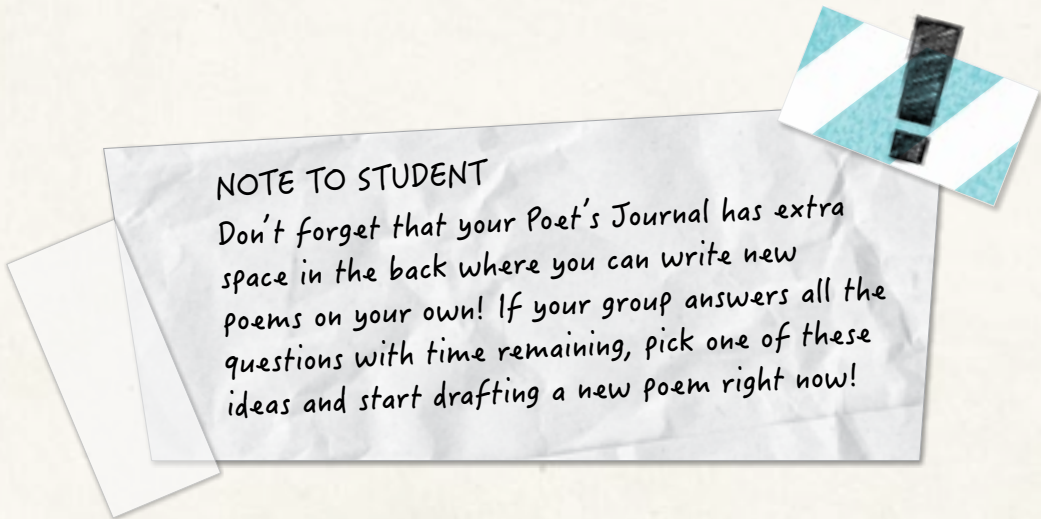 NOTE TO STUDENT
Don't forget that your Poet's Journal has extra
space in the back where you can write new
poems on your own! If your group answers all the
questions with time remaining, pick one of these
ideas and start drafting a new poem right now!
!